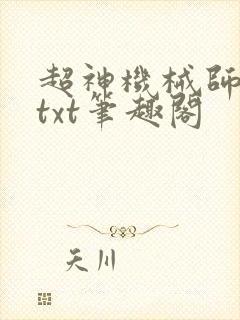 超神機械師
txt筆趣閣
天川